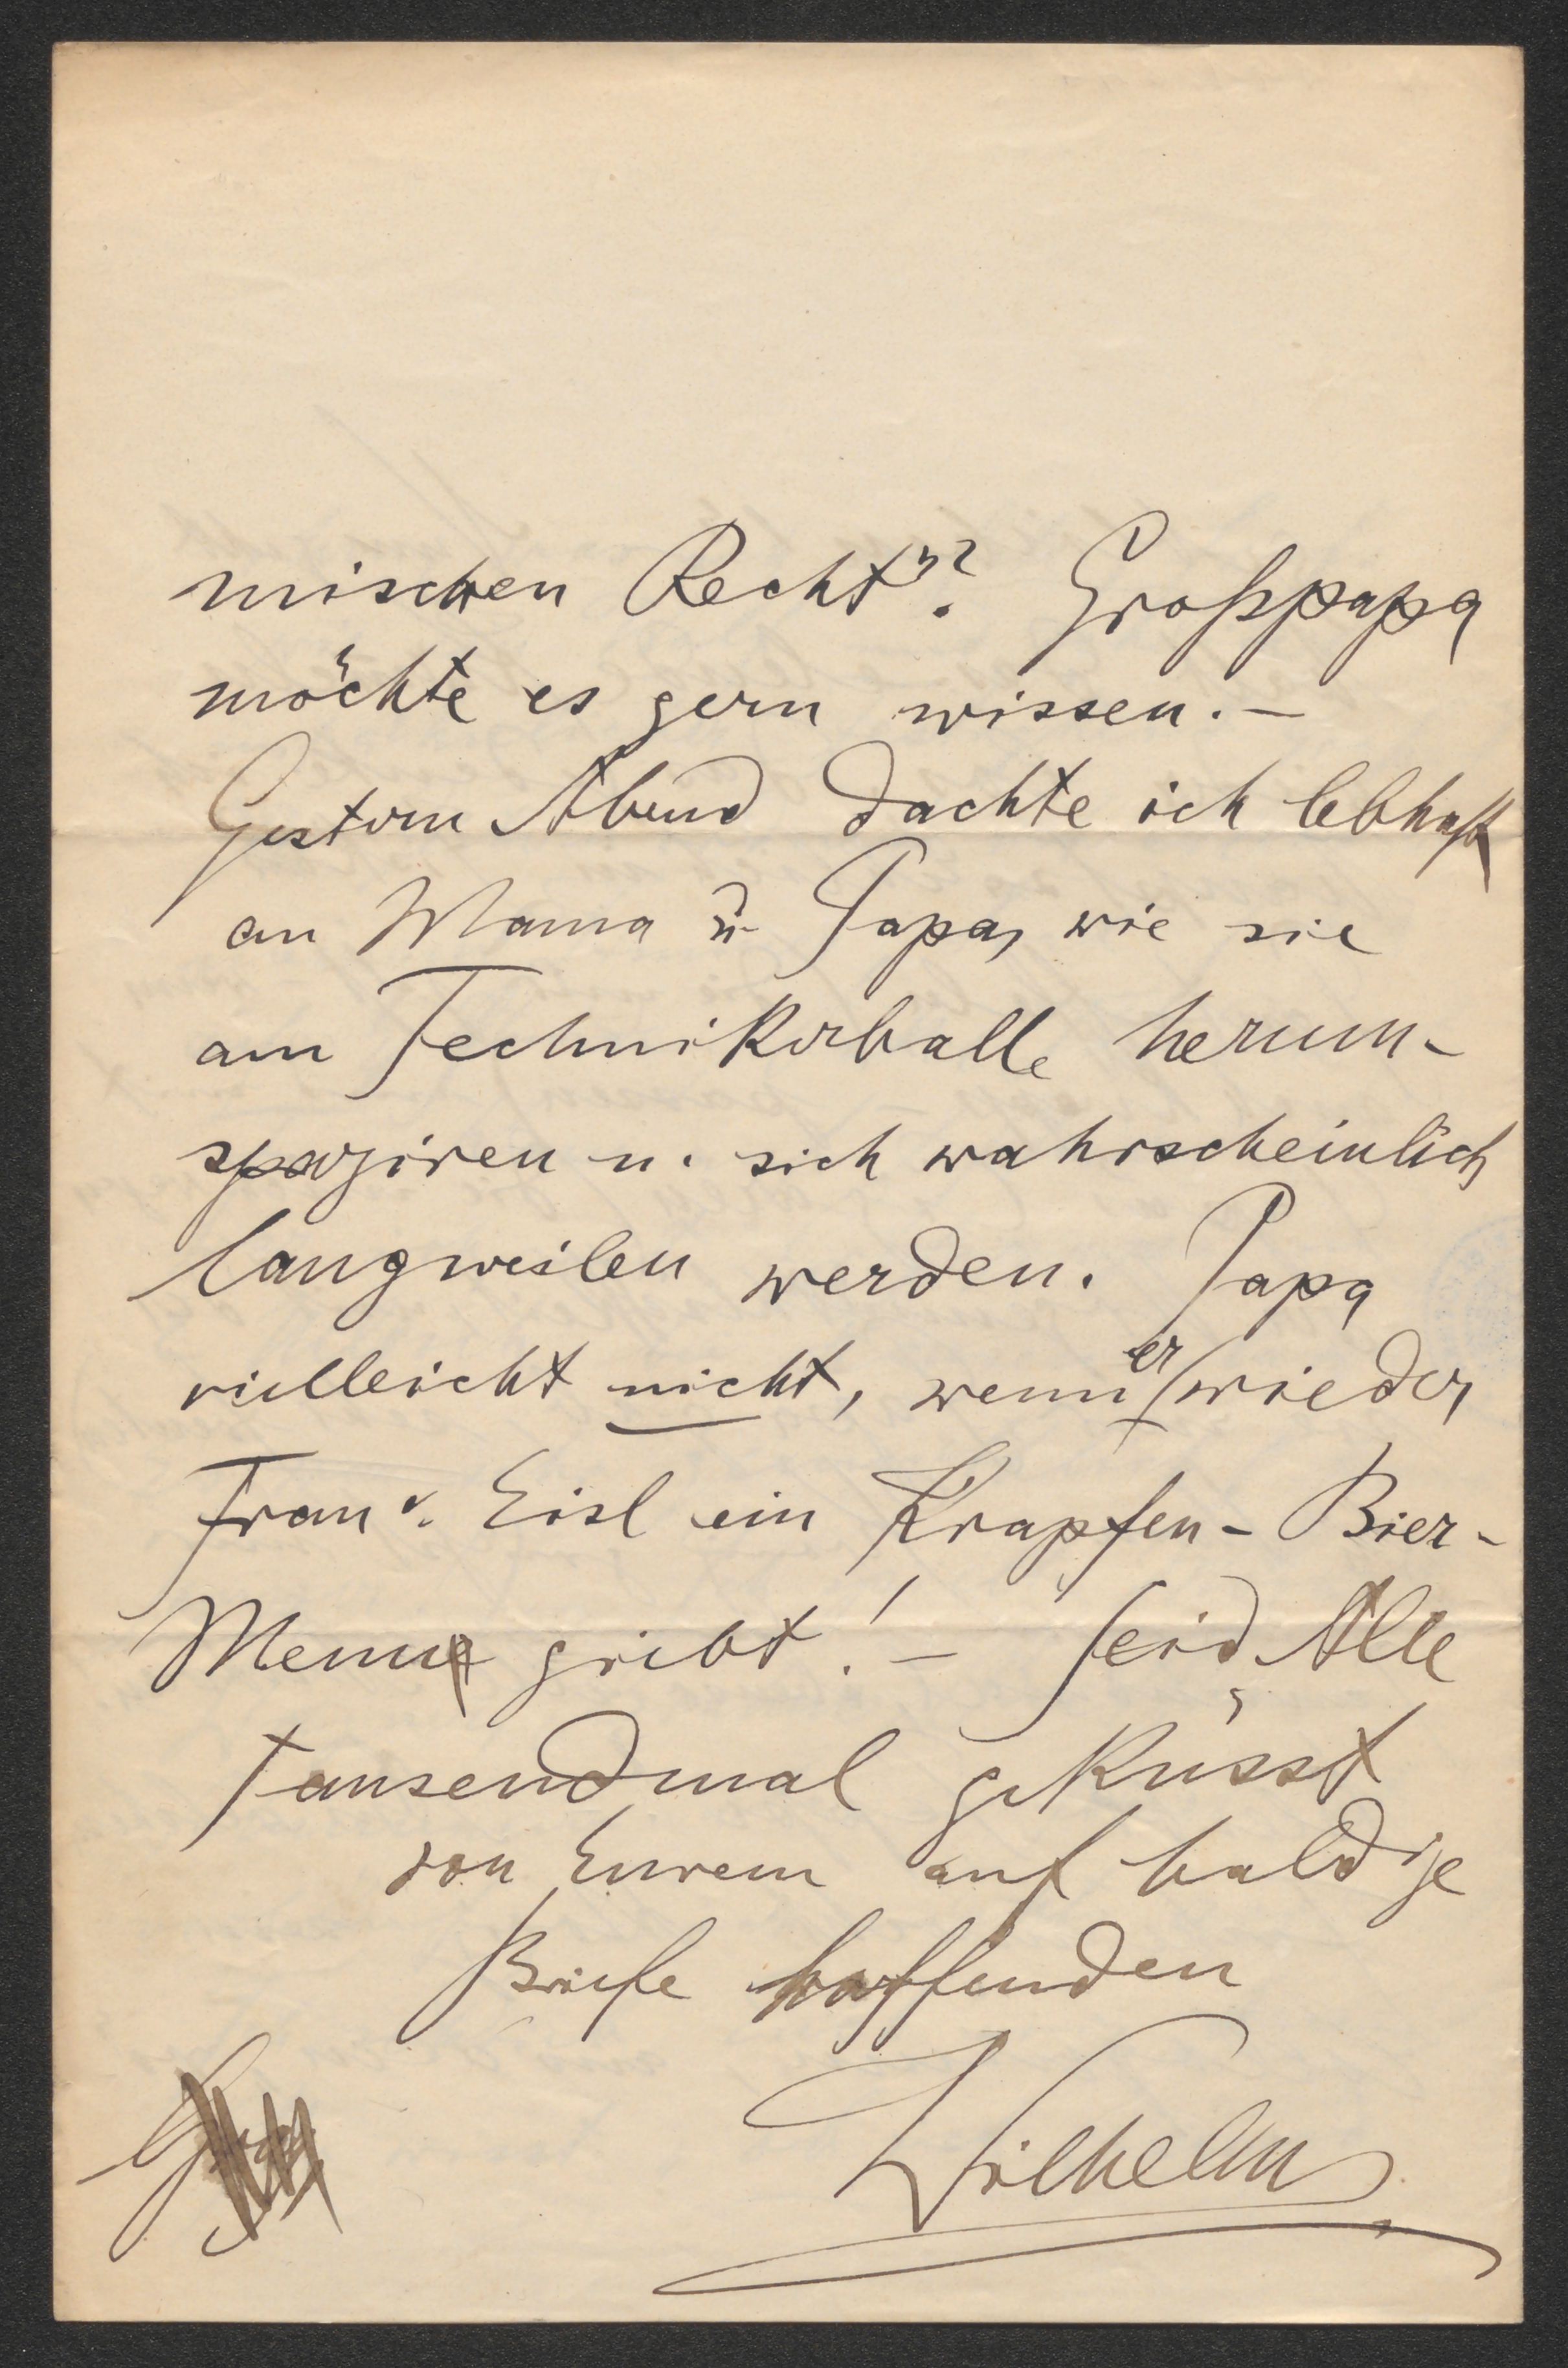 mischen Recht"? Großpapa
möchte es gern wissen. –
Gestern Abend dachte ich lebhaft
an Mama u. Papa, wie sie
am Technikerballe herum-
spaziren u. sich wahrscheinlich
langweilen werden. Papa
vielleicht nicht, wenn er wieder
Frau v. Eisl ein Krapfen-Bier-
Menu giebt! – Seid Alle
tausendmal geküsst
von Eurem auf baldige
Briefe hoffenden
Wilhelm